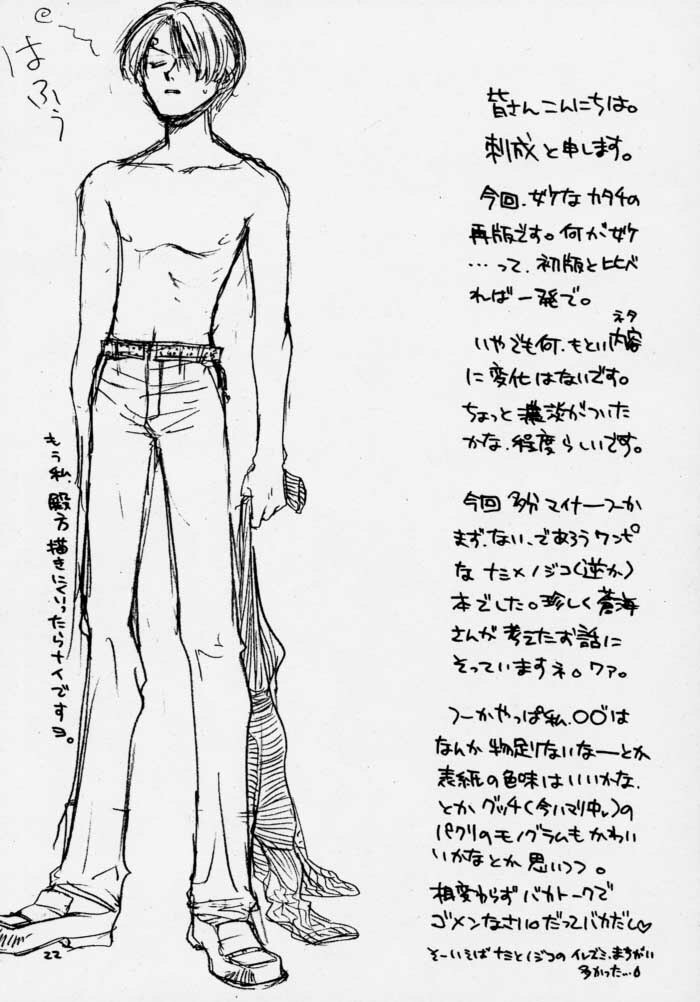 はふぅ
皆さんこんにちは。
刺成と申します。
今回、ダケなカタチの
再版です。何がダケ
…って、初版と比べ
れば一発で。
いやでも何、もとい内容
ネタ
に変化はないです。
ちょっと濃淡がついた
かな、程度らしいです。
今回多分マイナーつーか
まず、ない、であろうワンピ
なナミ×ノジコ(逆か)
本でした。珍しく蒼海
さんが考えたお話に
そっていますネ。ワァ。
つーかやっぱ私、○○は
なんか物足りないなーとか
表紙の色味はいいかな、
とかグッチ(今ハマリ中)の
パクリのモノグラムもかわい
いかなとか思いつつ。
相変わらずバカトークで
ゴメンなさい。だってバカだし♡
そーいえばナミとノジコのイレズミ、まちがい
多かった…
もう私、殿方描きにくいったらナイですヨ。
22